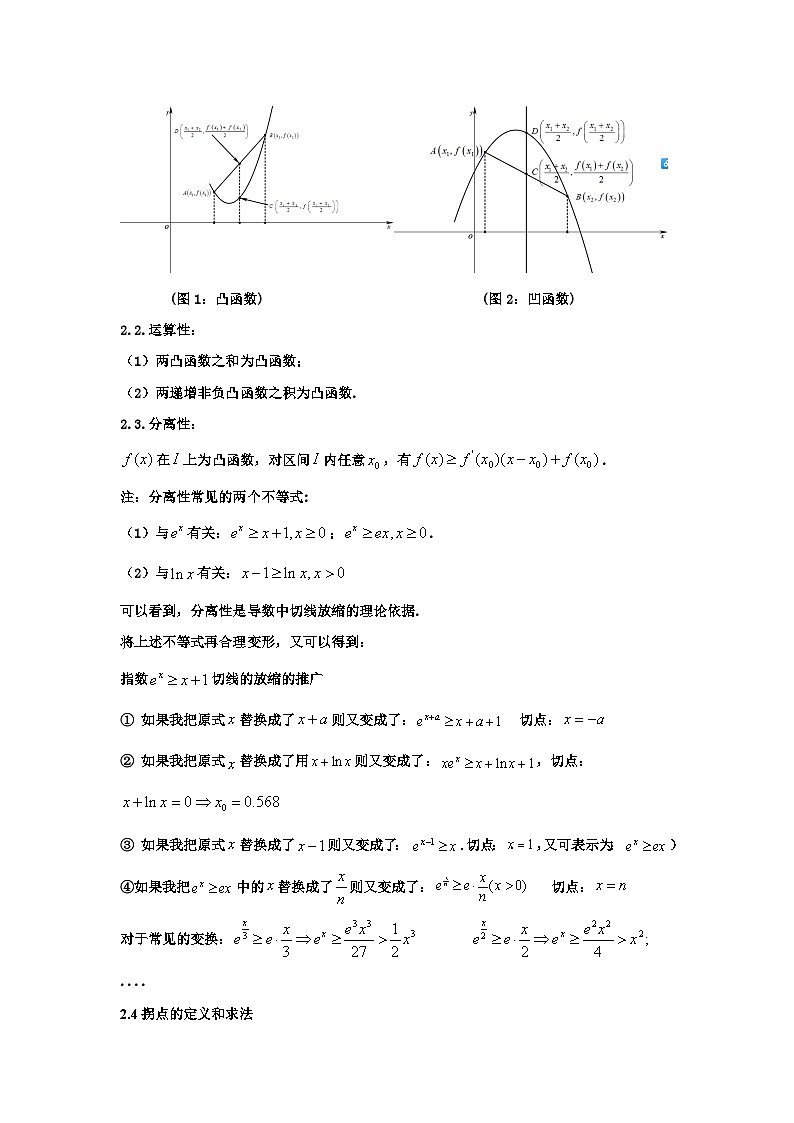 y
D(x₁+x₂/2, f(x₁)+f(x₂)/2)
B(x₂,f(x₂))
A(x₁,f(x₁))
C(x₁+x₂/2, f(x₁+x₂/2))
O x
y
D(x₁+x₂/2, f(x₁+x₂/2))
A(x₁,f(x₁))
C(x₁+x₂/2, f(x₁)+f(x₂)/2)
B(x₂,f(x₂))
O x
6
(图1：凸函数) (图2：凹函数)
2.2.运算性：
（1）两凸函数之和为凸函数；
（2）两递增非负凸函数之积为凸函数.
2.3.分离性：
f(x)在I上为凸函数，对区间I内任意x₀，有f(x)≥f'(x₀)(x−x₀)+f(x₀).
注：分离性常见的两个不等式：
（1）与eˣ有关：eˣ≥x+1,x≥0；eˣ≥ex,x≥0.
（2）与ln x有关：x−1≥ln x,x>0
可以看到，分离性是导数中切线放缩的理论依据.
将上述不等式再合理变形，又可以得到：
指数eˣ≥x+1切线的放缩的推广
① 如果我把原式x替换成了x+a则又变成了：eˣ⁺ᵃ≥x+a+1 切点：x=−a
② 如果我把原式x替换成了用x+ln x则又变成了：xeˣ≥x+ln x+1，切点：
x+ln x=0⇒x₀=0.568
③ 如果我把原式x替换成了x−1则又变成了：eˣ⁻¹≥x.切点：x=1,又可表示为：eˣ≥ex）
④如果我把eˣ≥ex中的x替换成了x/n则又变成了：e^(x/n)≥e·x/n(x>0) 切点：x=n
对于常见的变换：e^(x/3)≥e·x/3⇒eˣ≥e³x³/27>1/2x³ e^(x/2)≥e·x/2⇒eˣ≥e²x²/4>x²;
....
2.4拐点的定义和求法